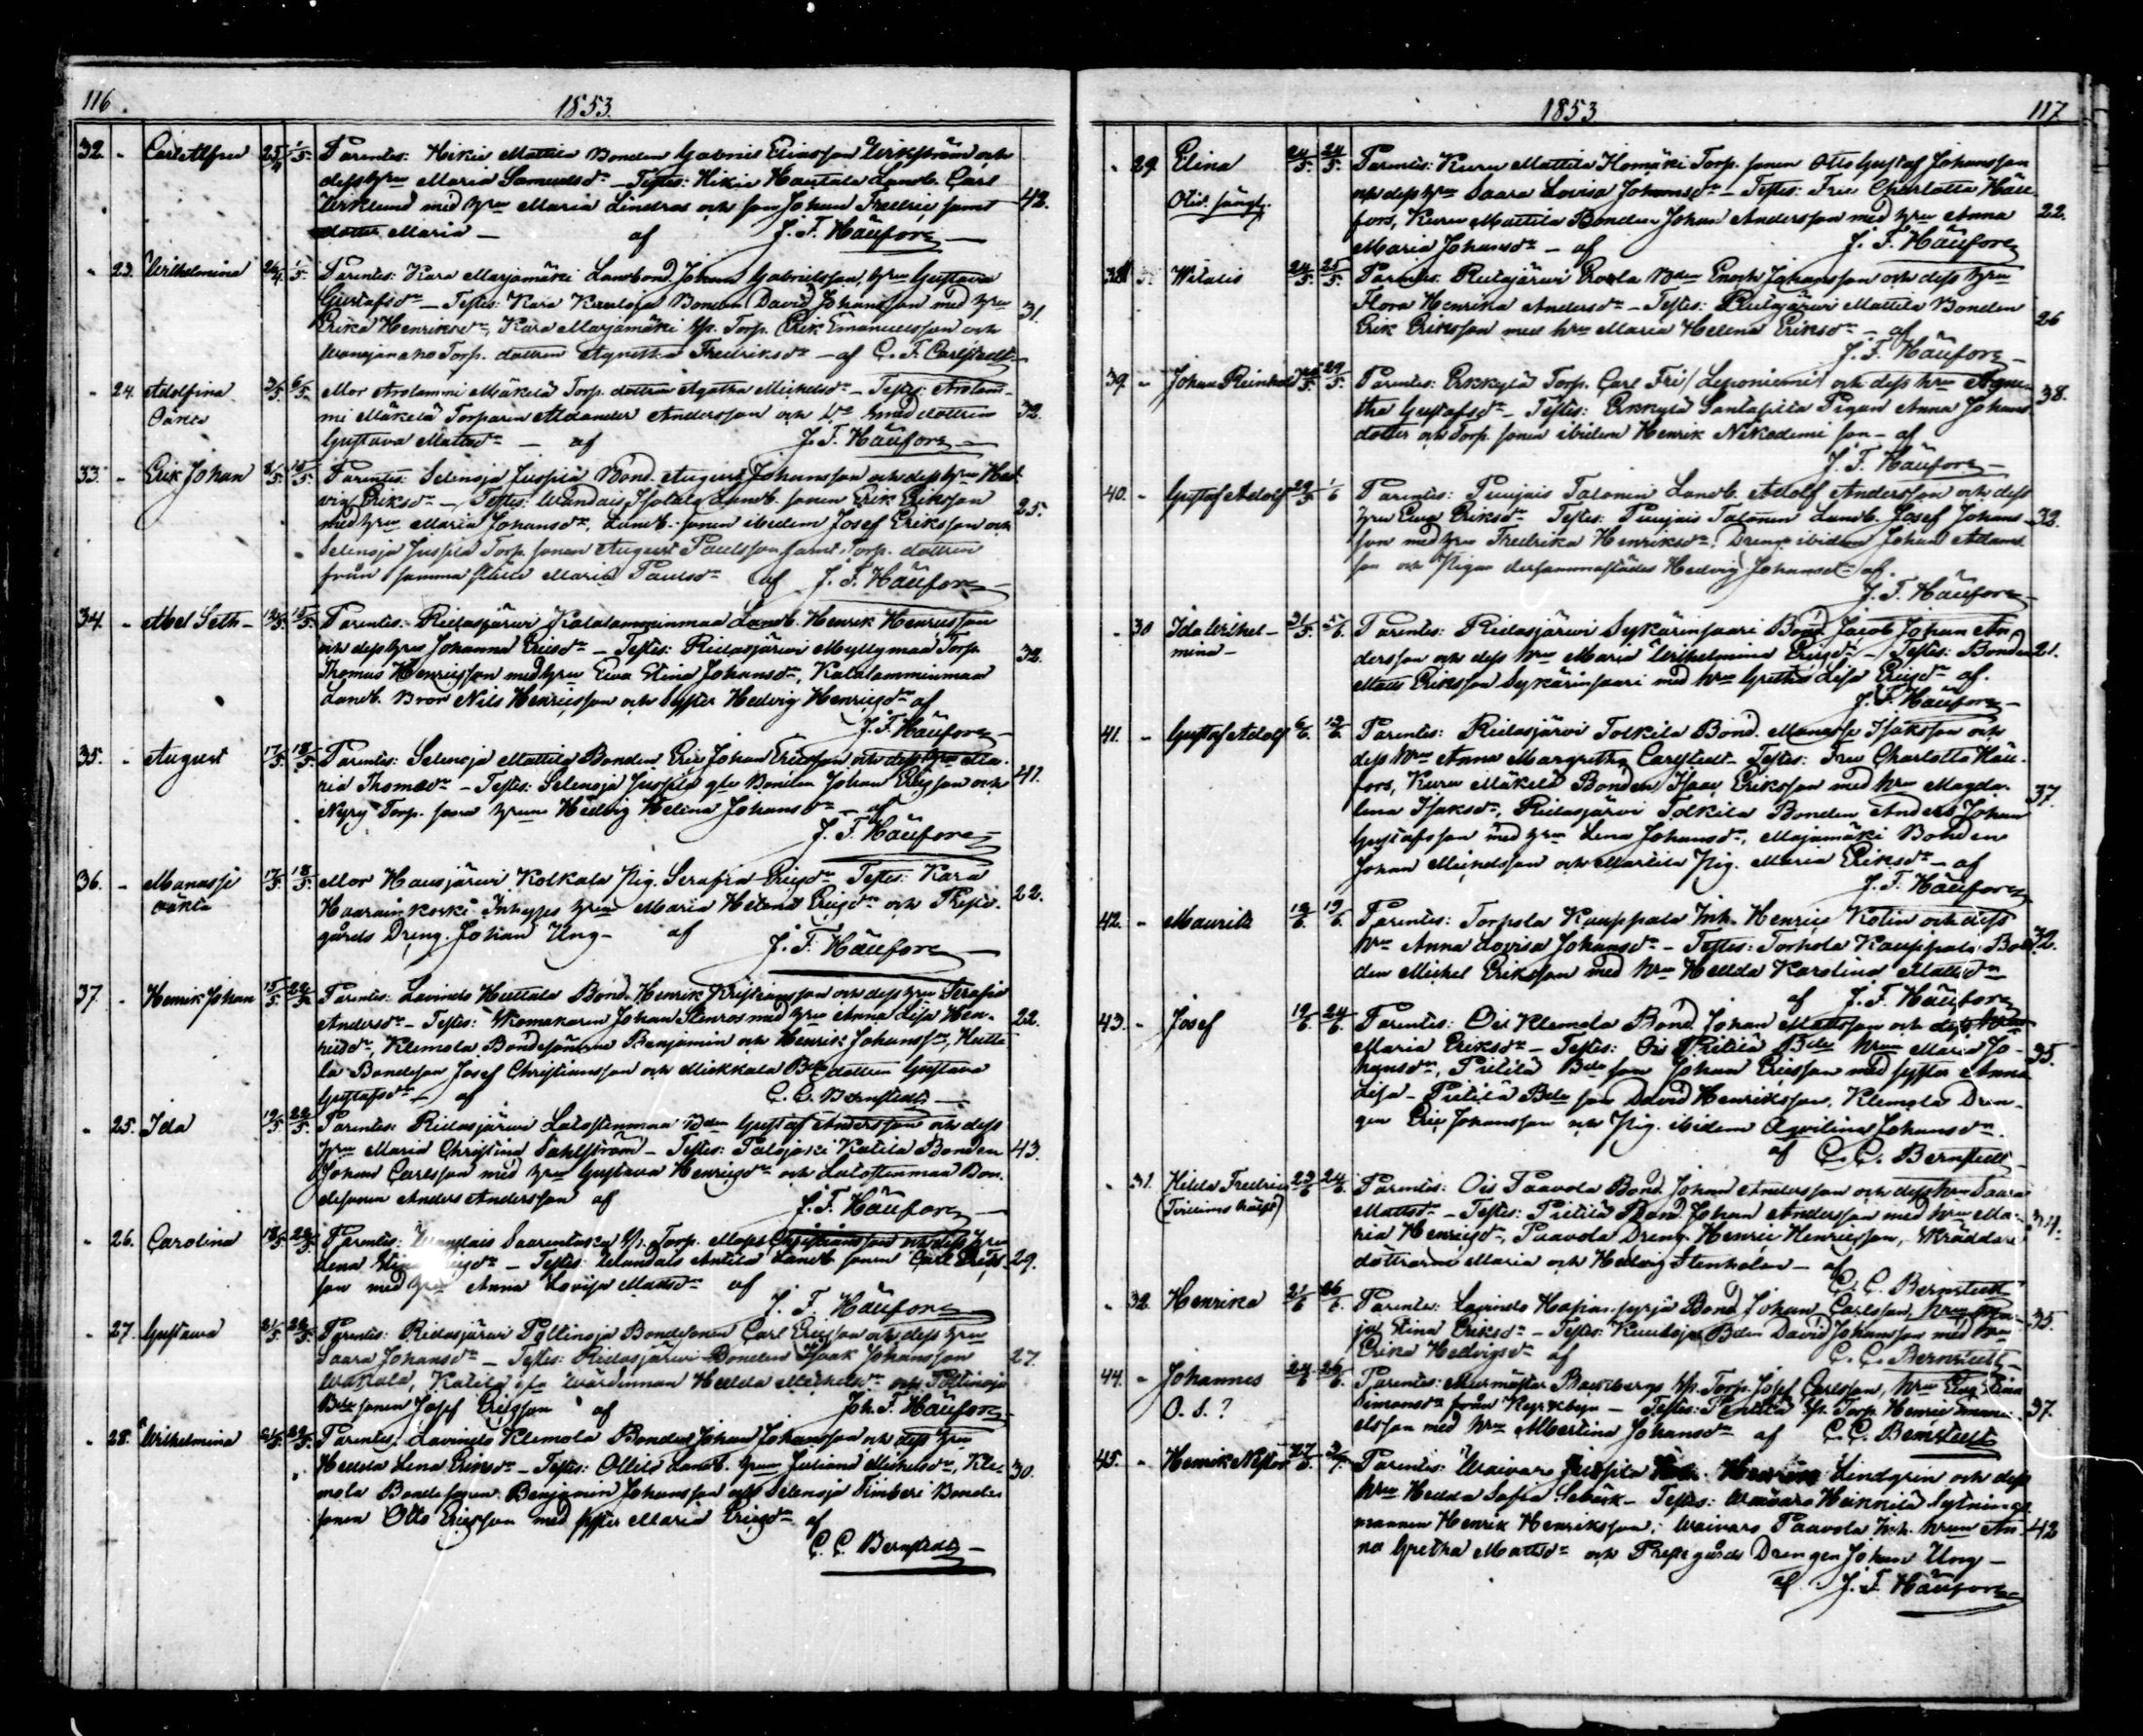 116. 1853.
32. - Carl Alfred 25/4 1/5 Parentes: Hikie Mattila Bonden Gabriel Eliasson Wikström och
dess hru Maria Samuelsdr - Testes: Hikie Hautala Landb. Carl
Wiklund med hru Maria Lindroos och son Johan Fredric samt 42.
dotter Maria - af J. F. Häufors
- 23. Wilhelmina 26/4 1/5 Parentes: Kara Marjamäki Landbond. Johan Gabrielsson, hru Gustava
Gustafsdr - Testes: Kara Bonden David Johansson med hru
Erika Henriksdr, Kara Marjamäki Sp. Torp. Erik Emanuelsson och 31.
Torp. dottren Agnetha Fredriksdr - af C. F. Carlstedt
- 24. Adolfina 2/5 6/5 Mor Arolammi Mäkelä Torp. dottren Agatha Michelsdr - Testes: Arolam-
Oäkta mi Mäkelä Torparen Alexander Andersson och dottren 32.
Gustava Mattsdr - af J. F. Häufors
33. - Erik Johan 8/5 15/5 Parentes: Selensja Juspila Bond. August Johansson och dess hru Hed-
vig Eriksdr - Testes: Wandais Isotalo Landb. sonen Erik Eriksson
med hru Maria Johansdr, Landb. sonen ibidem Josef Eriksson och 25.
Selensja Juspila Torp. sonen August Paulsson samt Torp. dottren
från samma ställe Maria Paulsdr af J. F. Häufors
34. - Abel Seth - 12/5 15/5 Parentes: Ridasjärwi Katalamminmaa Landb. Henrik Henricsson
och dess hru Johanna Ericsdr - Testes: Ridasjärwi Myllymaa Torp.
Thomas Henricsson med hru Eva Stina Johansdr, Katalamminmaa 32.
Landb. Bror Nils Henricsson och Syster Hedvig Henricsdr af
J. F. Häufors
35. - August 17/5 18/5 Parentes: Selensja Mattila Bonden Eric Johan Ericsson och dess hru Ma-
ria Thomasdr - Testes: Selensja Juspila gle Bonden Johan Ericsson och 41.
Nyry Torp. sons hrun Hedvig Helena Johansdr - af
J. F. Häufors
36. - Manasse 17/5 18/5 Mor Hausjärwi Kolkala Pig. Serafia Ericsdr Testes: Kara
oäkta Haarainkoski Inhyses hru Maria Helena Ericsdr och Prest- 22.
gårds Dreng. Johan Ung - af J. F. Häufors
37. - Henrik Johan 15/5 22/5 Parentes: Lavinto Huttala Bond. Henrik Kristiansson och dess hru Serafia
Andersdr - Testes: Skomakaren Johan Stenroos med hru Anna Lisa Hen-
ricsdr, Klemola Bondesönerne Benjamin och Henric Johansson, Hutta- 22.
la Bondeson Josef Christiansson och Mickkala Bde dottren Gustava
Gustafsdr - af C. C. Bernstedt
- 25. Ida 19/5 22/5 Parentes: Ridasjärwi Latostenmaa Bden Gustaf Andersson och dess
hru Maria Christina Sahlström - Testes: Palojoki Katila Bonden 43.
Johan Carlsson med hru Gustava Henricsdr och Latostenmaa Bon-
desonen Anders Andersson af J. F. Häufors
- 26. Carolina 18/5 22/5 Parentes: Wandais Saarentaka Sp. Torp. Christiansson och dess hru
Lena - Testes: Wandais Anttila Landb. sonen Carl Eriks- 29.
son med hru Anna Lovisa Mattsdr af
J. F. Häufors
- 27. Gustava 21/5 22/5 Parentes: Ridasjärwi Pältinoja Bondesonen Carl Ericsson och dess hru
Saara Johansdr - Testes: Ridasjärwi Bonden Isaak Johansson 27.
Katila Wärdinnan Hedda Michelsdr och Pältinoja
Bde sonen Josef Ericsson af Joh. F. Häufors
- 28. Wilhelmina 21/5 22/5 Parentes: Lavinto Klemola Bonden Johan Johansson och dess hru
Hedda Lena Ericsdr - Testes: Ollila Landb. hrun Juliana Michelsdr, Kle-
mola Bondesonen Benjamin Johansson och Selensja Timberi Bonde- 30.
sonen Otto Ericsson med syster Maria Ericsdr af
C. C. Bernstedt
1853 117
- 29. Elina 24/5 24/5 Parentes: Kuru Mattila Komäki Torp. sonen Otto Gustaf Johansson
och dess hru Saara Lovisa Johansdr - Testes: Fru Charlotta Häu-
fors, Kuru Mattila Bonden Johan Andersson med hru Anna 22.
Maria Johansdr - af J. F. Häufors
38. - Witalis 24/5 25/5 Parentes: Ridasjärwi Erola Bden Enoch Johansson och dess hru
Flora Henrika Andersdr - Testes: Ridasjärwi Mattila Bonden 26
Erik Eriksson med hru Maria Helena Eriksdr - af
J. F. Häufors
39. - Johan Reinhold 29/5 Parentes: Erkkylä Torp. Carl Fri/Leponiemi/ och dess hru Agne-
tha Gustafsdr - Testes: Erkkylä Santapila Pigan Anna Johans- 38.
dotter och Torp. sonen ibidem Henrik Nikodemi son - af
J. F. Häufors
40. - Gustaf Adolf 29/5 1/6 Parentes: Puujais Talonen Landb. Adolf Andersson och dess
hru Ewa Eriksdr Testes: Puujais Talonen Landb. Josef Johans- 32.
son med hru Fredrika Henriksdr, Drenge ibidem Johan Adams-
son och Pigan dersammastädes Hedvig Johansdr af.
J. F. Häufors
- 30 Ida Wilhel- 31/5 5/6 Parentes: Ridasjärwi Sykärinsaari Bond Jacob Johan An-
mina - dersson och dess hru Maria Wilhelmina Ericsdr - Testes: Bonden 21.
Matts Eriksson Sykärinsaari med hru Gretha Lisa Ericsdr af.
J. F. Häufors
41. - Gustaf Adolf 6/6 12/6 Parentes: Ridasjärwi Tolkila Bond. Manasse Isaksson och
dess hru Anna Margretha Carlstedt - Testes: Fru Charlotta Häu-
fors, Kuru Mäkelä Bonden Isaac Eriksson med hru Magda-
lena Isaksdr, Ridasjärwi Tolkila Bonden Anders Johan 37.
Gustafsson med hru Lena Johansdr, Majamäki Bonden
Johan Michelsson och Martila Pig. Maria Eriksdr - af
J. F. Häufors
42. - Maurits 12/6 19/6 Parentes: Torhola Kauppala Inh. Henric Kolin och dess
hru Anna Lovisa Johansdr - Testes: Torhola Kauppala Bon- 32.
den Michel Eriksson med hru Hedda Karolina Mattsdr
af J. F. Häufors
43. - Josef 19/6 24/6 Parentes: Ois Klemola Bond Johan Mattsson och dess hru
Maria Eriksdr - Testes: Ois Pietilä Bde hrun Maria Jo-
hansdr, Pietilä Bde son Johan Ericsson med syster Anna 35.
Lisa - Pietilä Bde son David Henriksson, Klemola Dren-
gen Eric Johansson och Pig. ibidem Aqvilina Johansdr.
af C. C. Bernstedt
- 31. Hilda Fredrica 23/6 24/6 Parentes: Ois Paavola Bond. Johan Andersson och dess hru Saara
Mattsdr - Testes: Pietilä Bond. Johan Andersson med hru Ma-
ria Henricsdr, Paavola Dreng Henric Henricsson, Skräddare 34.
döttrarne Maria och Hedvig Stenholm - af
C. C. Bernstedt
- 32. Henrika 21/6 26/6 Parentes: Lavinto Bond Johan Carlsson, hru
Stina Eriksdr - Testes: Kuuloja Bden David Johansson med hru 35.
Erika Hedvigsdr af C. C. Bernstedt
44. - Johannes 24/6 26/6 Parentes: Murmäster Backbergs Sp. Torp. Josef Carlsson, hru Eva Stina
O. S. ? Simonsdr från Kyrkbyn - Testes: Penttilä Sp. Torp. Henric Emanu- 37.
elsson med hru Albertina Johansdr af C. C. Bernstedt
45. - Henrik Nestor 27/6 3/7 Parentes: Waivaro Juspila Lindgrén och dess
hru Hedda Sofia - Testes: Waivaro Heikkilä Sytnings
mannen Henrik Henriksson, Waivaro Paavola Inh. hrun An- 42
na Gretha Mattsdr och Prestgårds Drengen Johan Ung -
af. J. F. Häufors